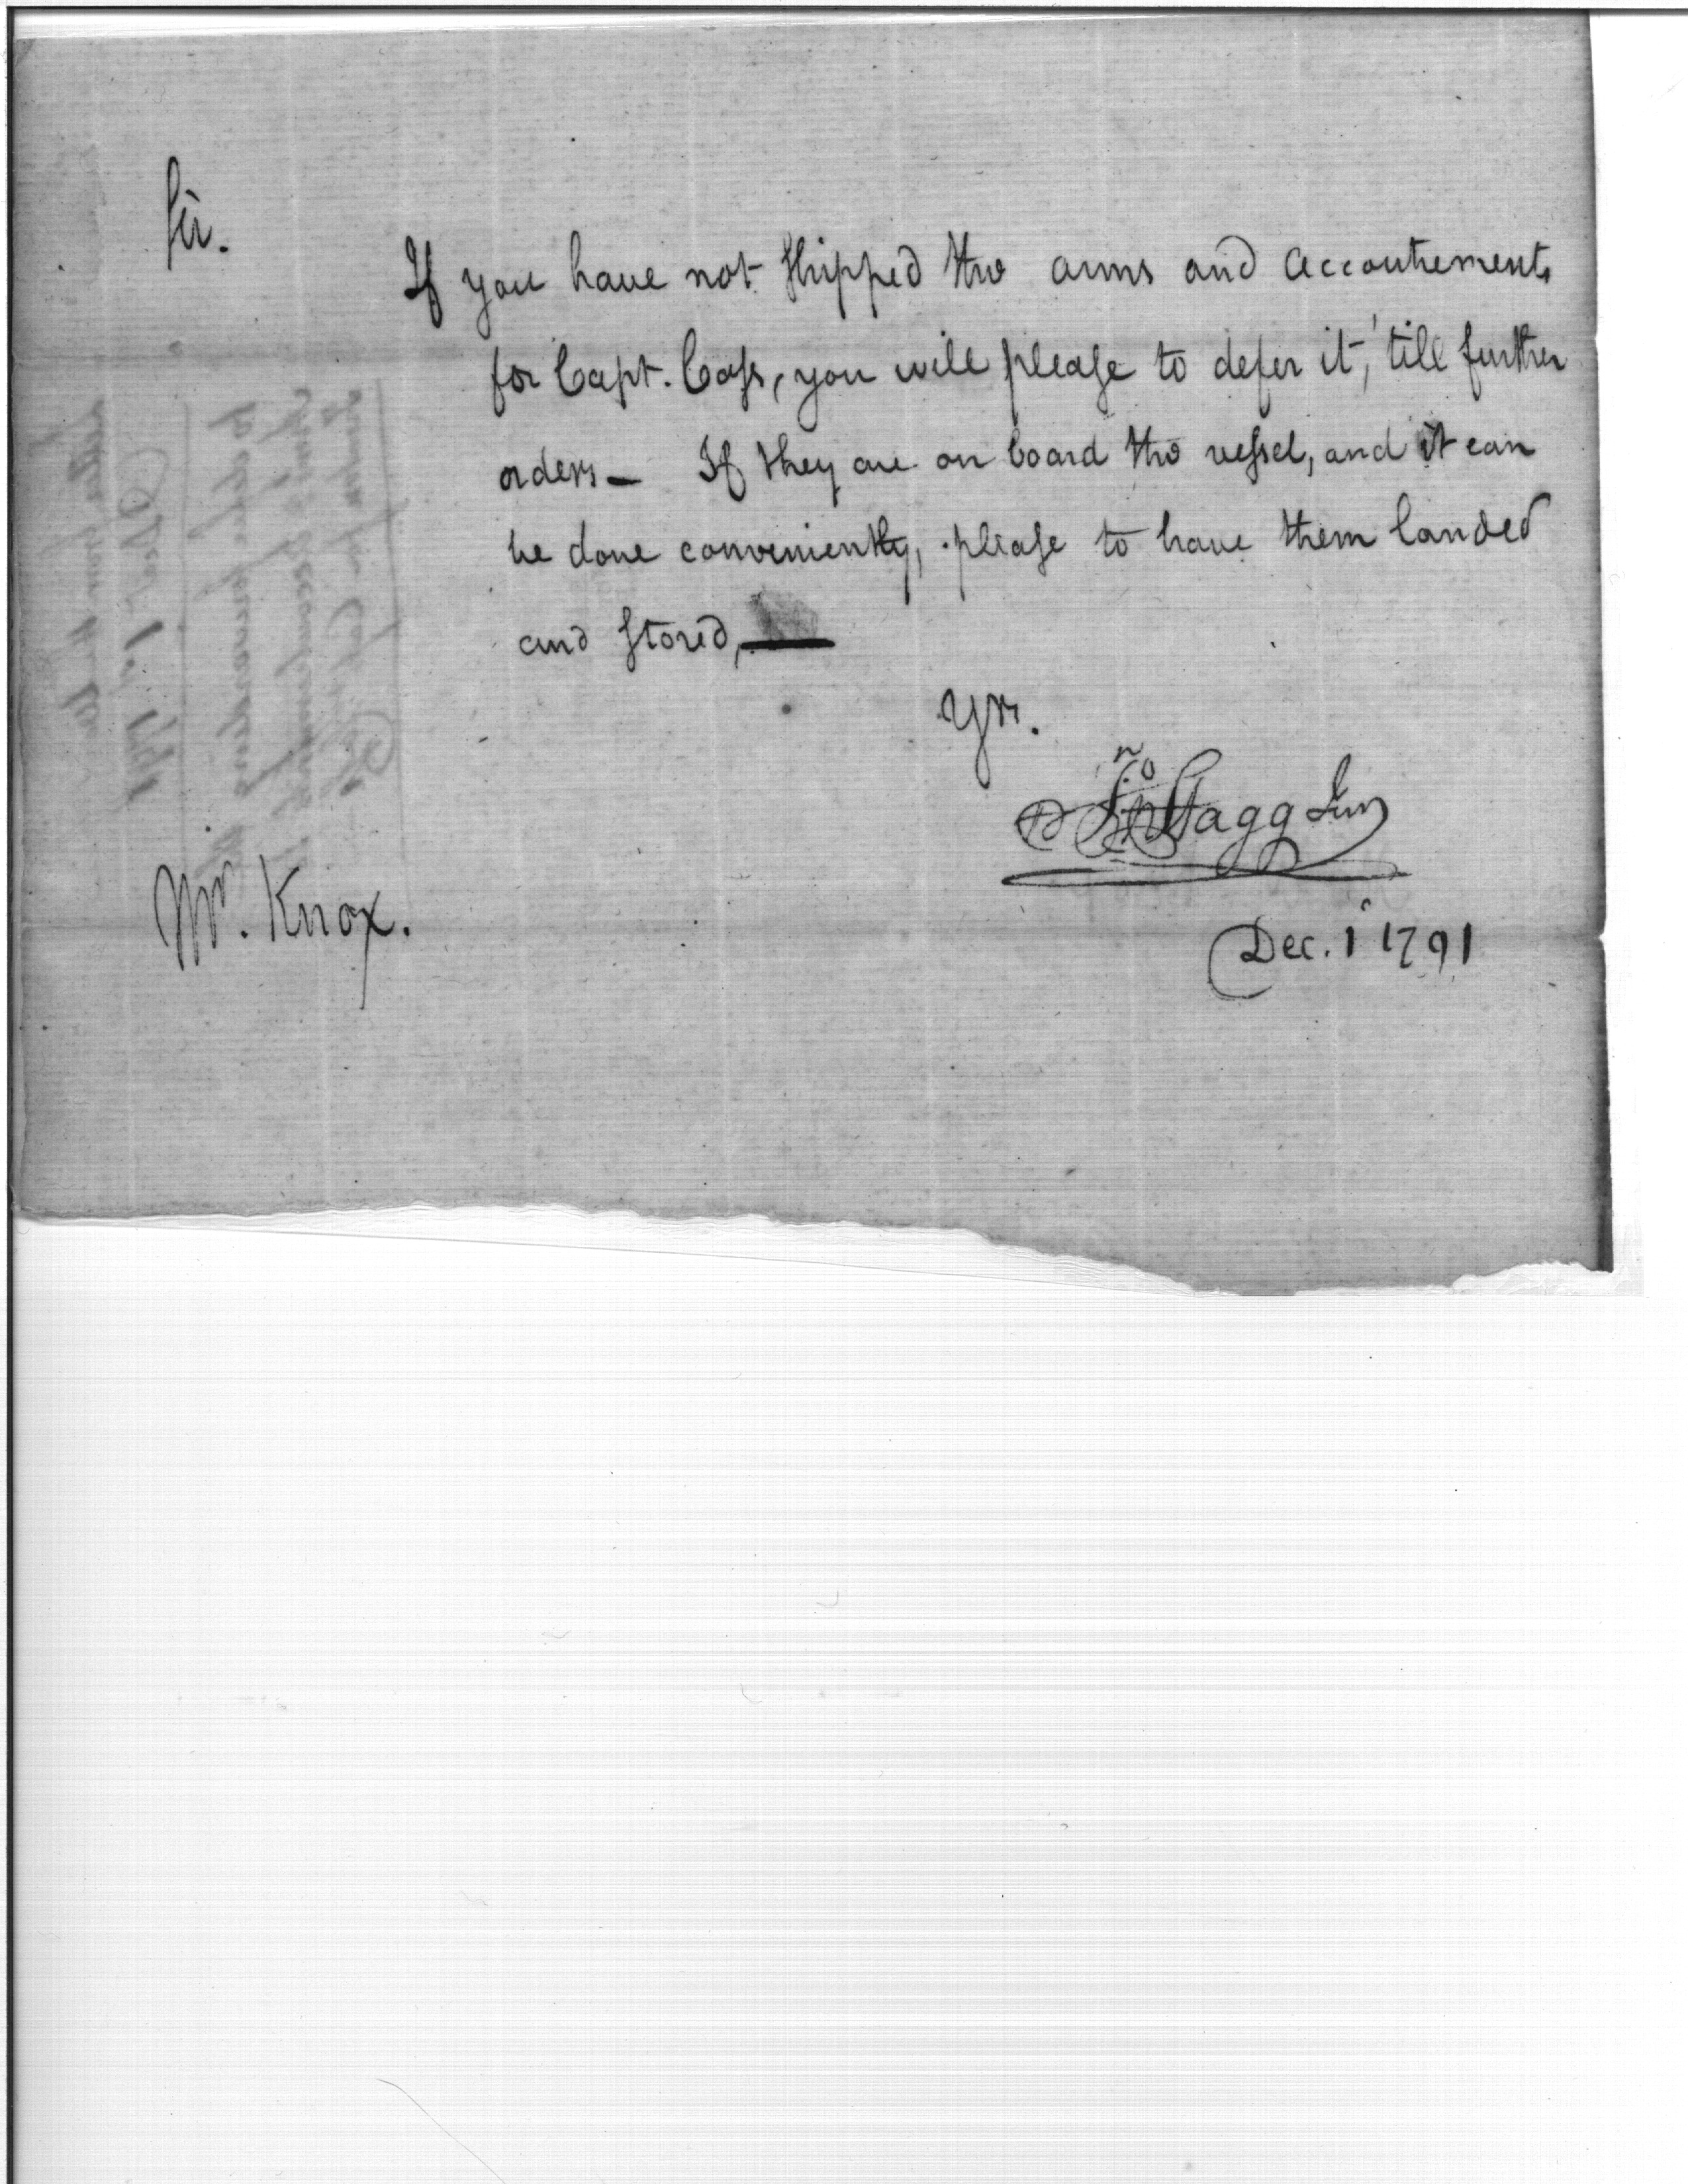 Sir.
If you have not shipped the arms and accoutrements
for Capt. Cass, you will please to defer it, 'till further
orders — If they are on board the vessel, and it can
be done conveniently, please to have them landed
and stored, —
Yrs.
Jno Stagg Junr
Dec. 1 1791
Mr. Knox.